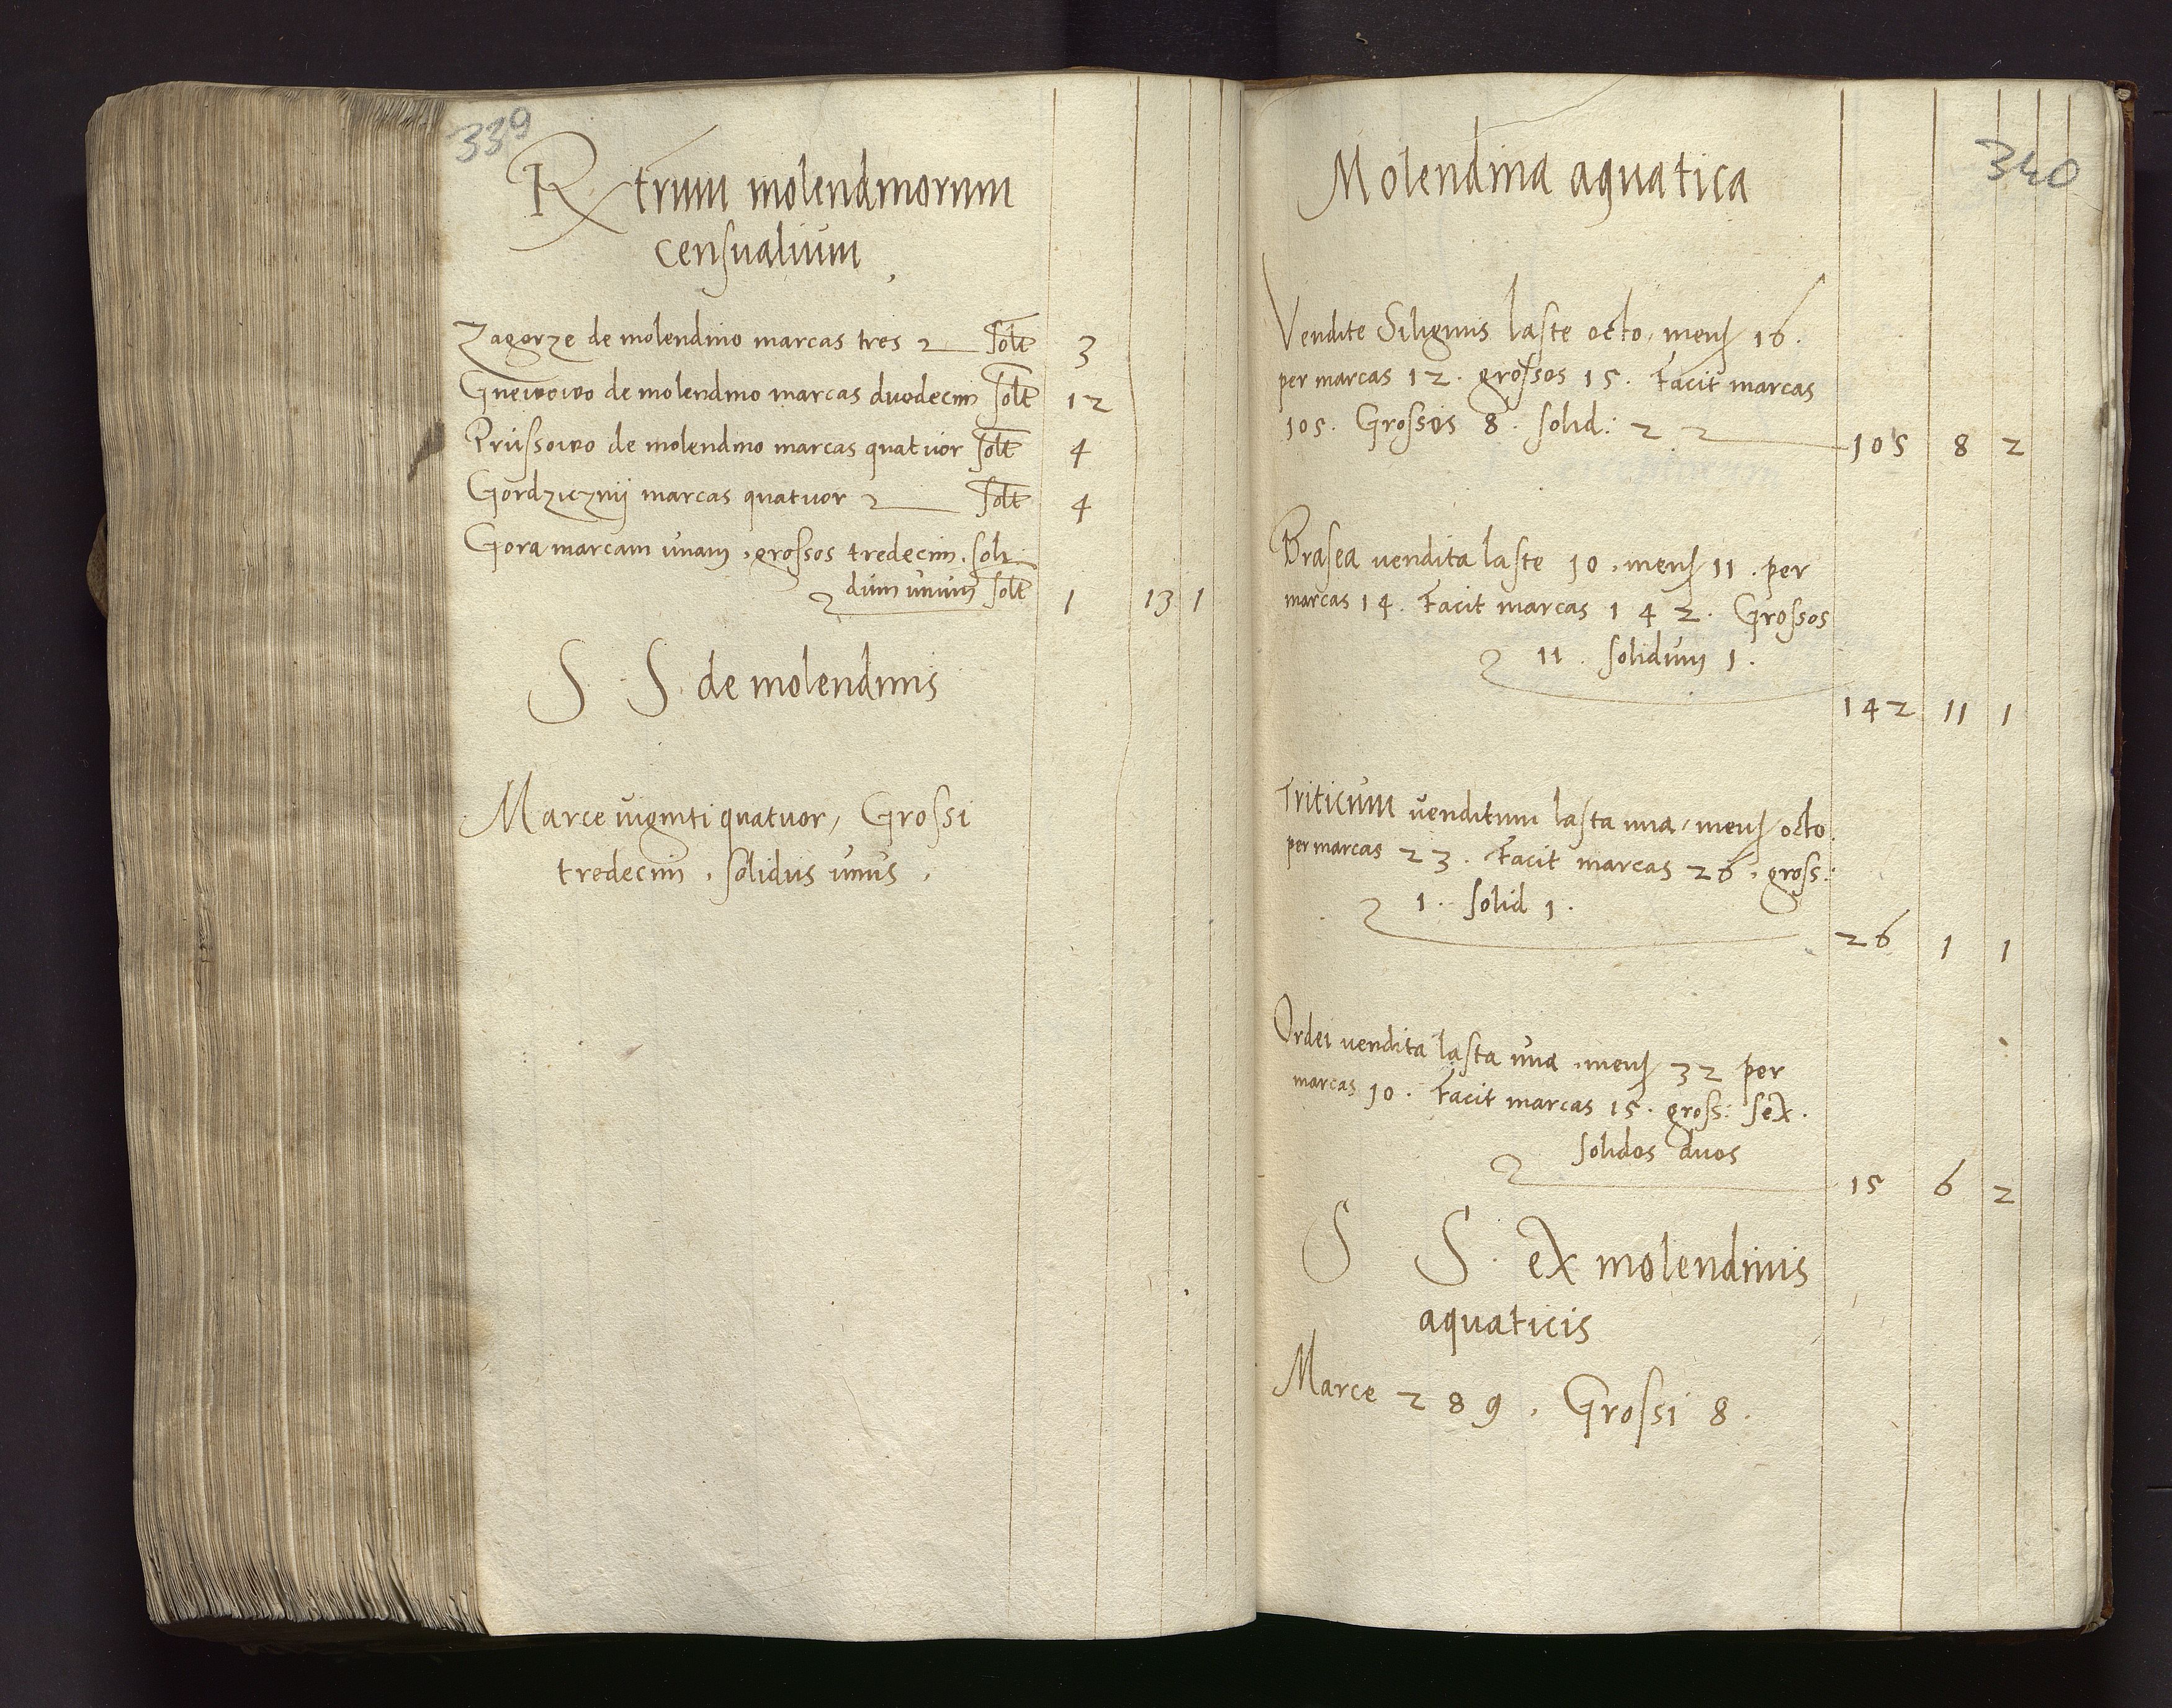 339
Rxtrum molendinorum
censualium
Zagorze de molendino marcas tres solt 3
Gneiwowo de molendino marcas duodecim solt 12
Prussowo de molendino marcas quatuor solt 4
Gordzicznij marcas quatuor solt 4
Gora marcam unam, grossos tredecim, soli
dum unum solt 1 13 1
S S de molendinis
Marce viginti quatuor, Grossi
tredecim, solidus unus,
340
Molendina aquatica
Vendite Siliginis laste octo, mens 16.
per marcas 12. grossos 15. Facit marcas
105. Grossos 8. solid: 2 105 8 2
Brasea vendita laste 10, mens 11. per
marcas 14. Facit marcas 142. Grossos
11. solidum 1.
142 11 1
Triticum venditum lasta una, mens octo.
per marcas 23. Facit marcas 26, gross:
1. solid 1.
26 1 1
Ordei vendita lasta una, mens 32 per
marcas 10. Facit marcas 15. gross: sex.
solidos duos
15 6 2
S S. ex molendinis
aquaticis
Marce 289, Grossi 8.